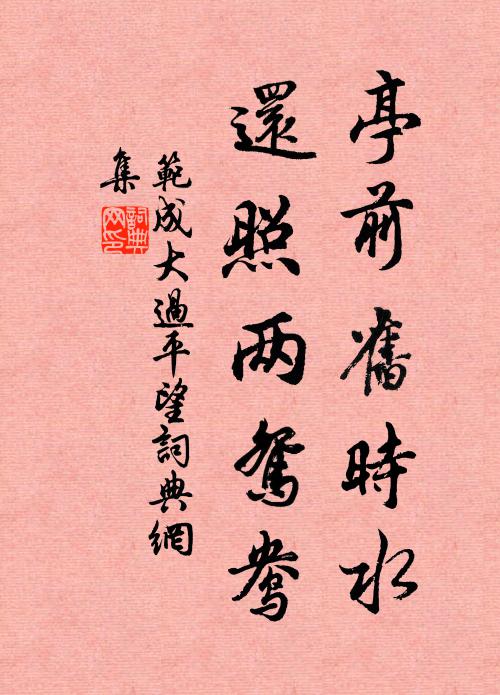 亭前舊時水
還照两鴛鴦
範成大過平望詞典網
集
詞典
网印